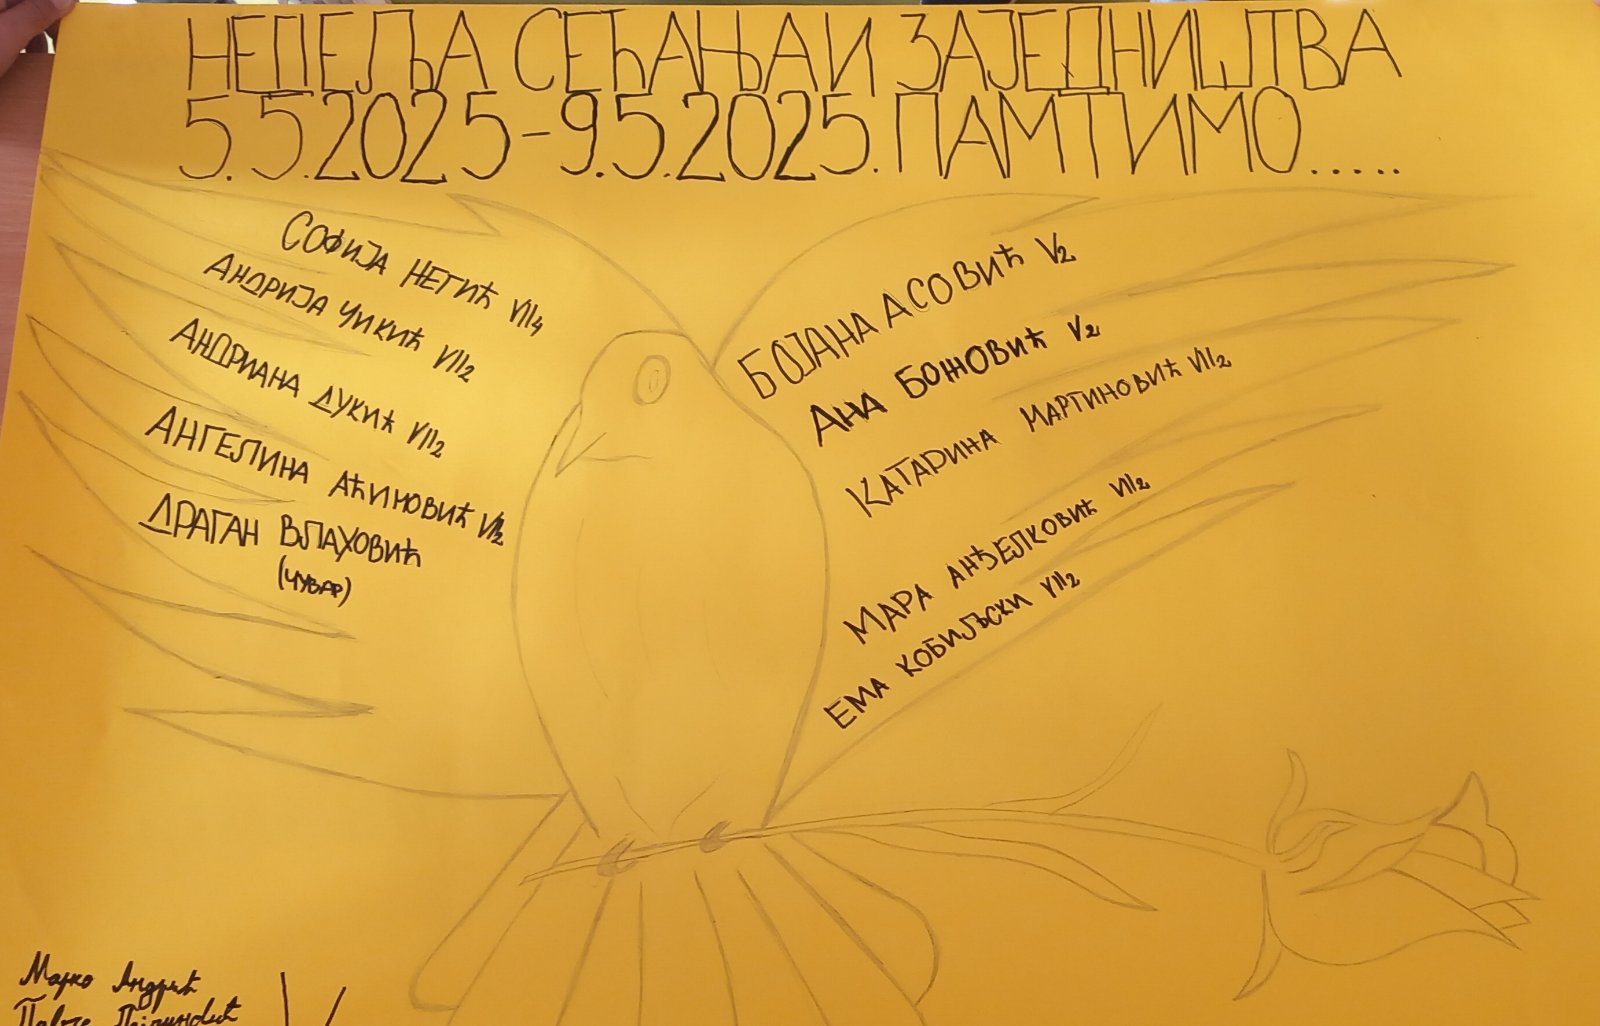 НЕДЕЉА СЕЋАЊА И ЗАЈЕДНИШТВА
5.5.2025-9.5.2025. ПАМТИМО.....
СОФИЈА НЕГИЋ VII4
АНДРИЈА ЧИКИЋ VII2
АНДРИАНА ДУКИЋ VII2
АНГЕЛИНА АЋИМОВИЋ VII2
ДРАГАН ВЛАХОВИЋ
(ЧУВАР)
БОЈАНА АСОВИЋ V2
АНА БОЖОВИЋ V2
КАТАРИНА МАРТИНОВИЋ VII2
МАРА АНЂЕЛКОВИЋ VII2
ЕМА КОБИЉСКИ VII2
Марко Андрић